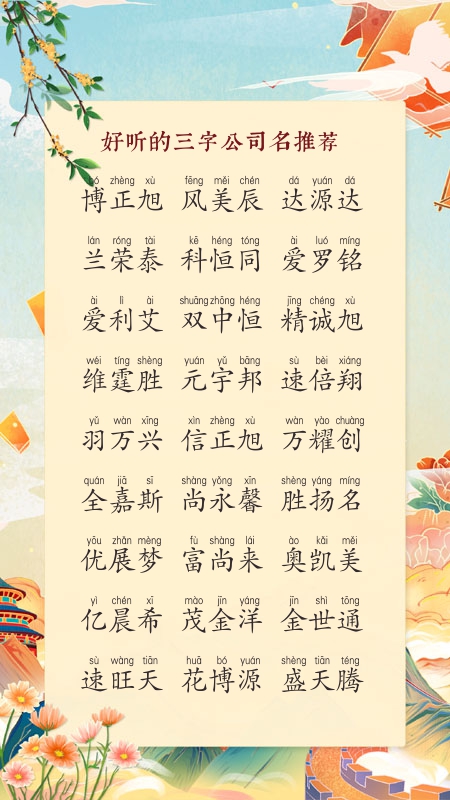 好听的三字公司名推荐
bó zhèng xù fēng měi chén dá yuán dá
博正旭 风美辰 达源达
lán róng tài kē héng tóng ài luó míng
兰荣泰 科恒同 爱罗铭
ài lì ài shuāng zhōng héng jīng chéng xù
爱利艾 双中恒 精诚旭
wéi tíng shèng yuán yǔ bāng sù bèi xiáng
维霆胜 元宇邦 速倍翔
yǔ wàn xīng xìn zhèng xù wàn yào chuàng
羽万兴 信正旭 万耀创
quán jiā sī shàng yǒng xīn shèng yáng míng
全嘉斯 尚永馨 胜扬名
yōu zhǎn mèng fù shàng lái ào kǎi měi
优展梦 富尚来 奥凯美
yì chén xī mào jīn yáng jīn shì tōng
亿晨希 茂金洋 金世通
sù wàng tiān huā bó yuán shèng tiān téng
速旺天 花博源 盛天腾